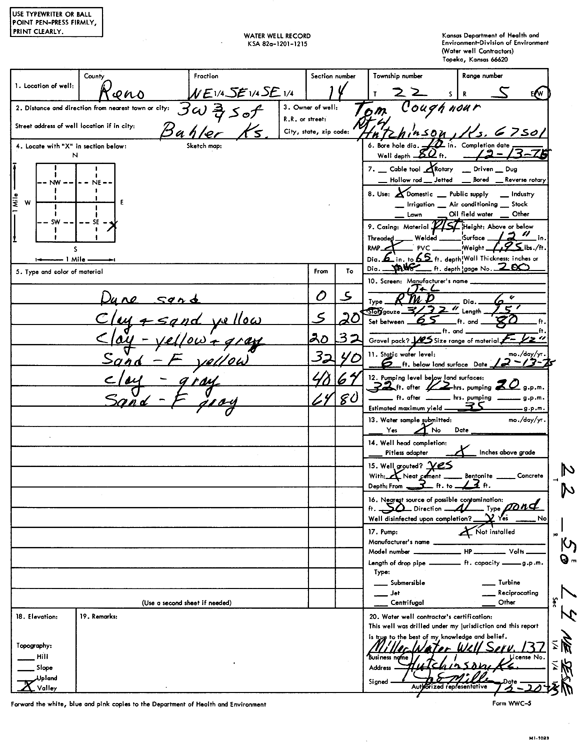 USE TYPEWRITER OR BALL
POINT PEN-PRESS FIRMLY,
PRINT CLEARLY.
WATER WELL RECORD
KSA 82a-1201-1215
Kansas Department of Health and
Environment-Division of Environment
(Water well Contractors)
Topeka, Kansas 66620
1. Location of well: County Reno Fraction NE 1/4 SE 1/4 SE 1/4 Section number 14 Township number T 22 S Range number R 5 E/W
2. Distance and direction from nearest town or city: 3W 3/4 S of
Street address of well location if in city: Buhler Ks.
3. Owner of well: Tom Coughnour
R.R. or street: Rt 4
City, state, zip code: Hutchinson, Ks. 67501
4. Locate with "X" in section below:
Sketch map:
N
NW NE
W E
SW SE X
S
1 Mile
1 Mile
6. Bore hole dia. 10 in. Completion date
Well depth 80 ft. 12-13-75
7. Cable tool X Rotary Driven Dug
Hollow rod Jetted Bored Reverse rotary
8. Use: X Domestic Public supply Industry
Irrigation Air conditioning Stock
Lawn Oil field water Other
9. Casing: Material Plst Height: Above or below
Threaded Welded Surface 12" in.
RMP X PVC Weight 1.95 lbs./ft.
Dia. 6 in. to 65 ft. depth Wall Thickness: inches or
Dia. ft. depth gage No. 200
5. Type and color of material From To
Dune sand 0 5
Clay + sand yellow 5 20
Clay - yellow + gray 20 32
Sand - F yellow 32 40
Clay - gray 40 64
Sand - F gray 64 80
(Use a second sheet if needed)
10. Screen: Manufacturer's name
J+L
Type RMP Dia. 6"
Slot/gauze 3/32" Length 15'
Set between 65 ft. and 80 ft.
ft. and ft.
Gravel pack? yes Size range of material F-1/2"
11. Static water level: mo./day/yr.
6 ft. below land surface Date 12-13-75
12. Pumping level below land surfaces:
32 ft. after 1/2 hrs. pumping 20 g.p.m.
ft. after hrs. pumping g.p.m.
Estimated maximum yield 35 g.p.m.
13. Water sample submitted: mo./day/yr.
Yes X No Date
14. Well head completion:
Pitless adapter X Inches above grade
15. Well grouted? yes
With: X Neat cement Bentonite Concrete
Depth: From 3 ft. to 13 ft.
16. Nearest source of possible contamination:
ft. 50 Direction N Type pond
Well disinfected upon completion? X Yes No
17. Pump: X Not installed
Manufacturer's name
Model number HP Volts
Length of drop pipe ft. capacity g.p.m.
Type:
Submersible Turbine
Jet Reciprocating
Centrifugal Other
18. Elevation:
Topography:
Hill
Slope
Upland
X Valley
19. Remarks:
20. Water well contractor's certification:
This well was drilled under my jurisdiction and this report
is true to the best of my knowledge and belief.
Miller Water Well Serv. 137
Business name License No.
Address Hutchinson, Ks.
Signed Miller 12-20-75
Authorized representative
Forward the white, blue and pink copies to the Department of Health and Environment
Form WWC-5
T R E Sec 1/4 1/4 1/4
22 - 5 14 NE SE SE